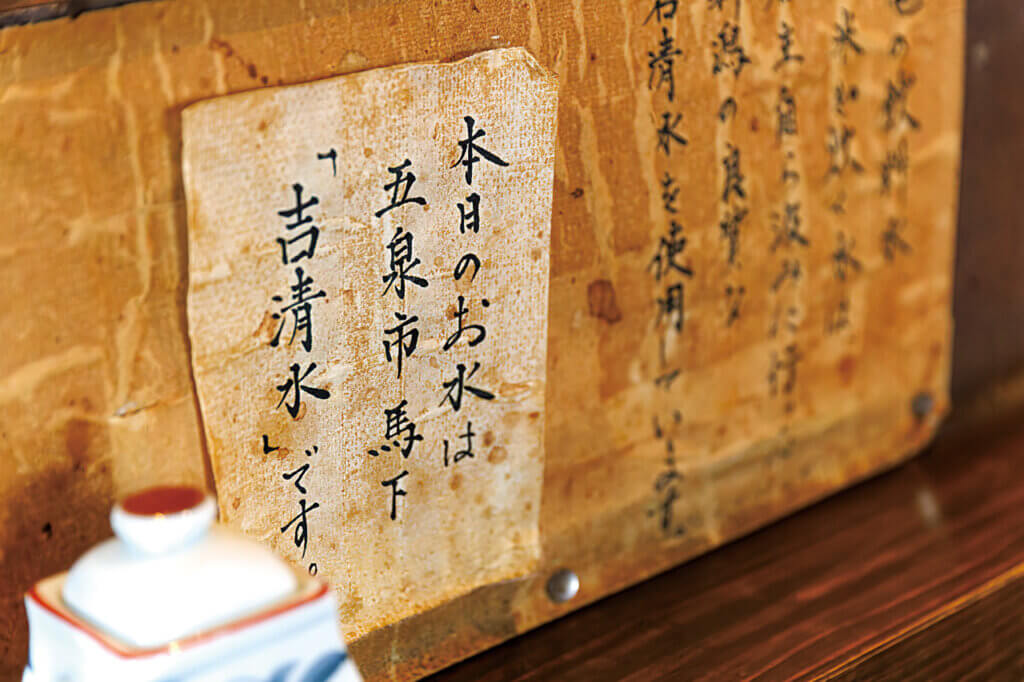 の飲料水
炊く水は
主自ら汲みに行
潟の良質な
清水を使用しています。
本日のお水は
五泉市馬下
「吉清水」です。